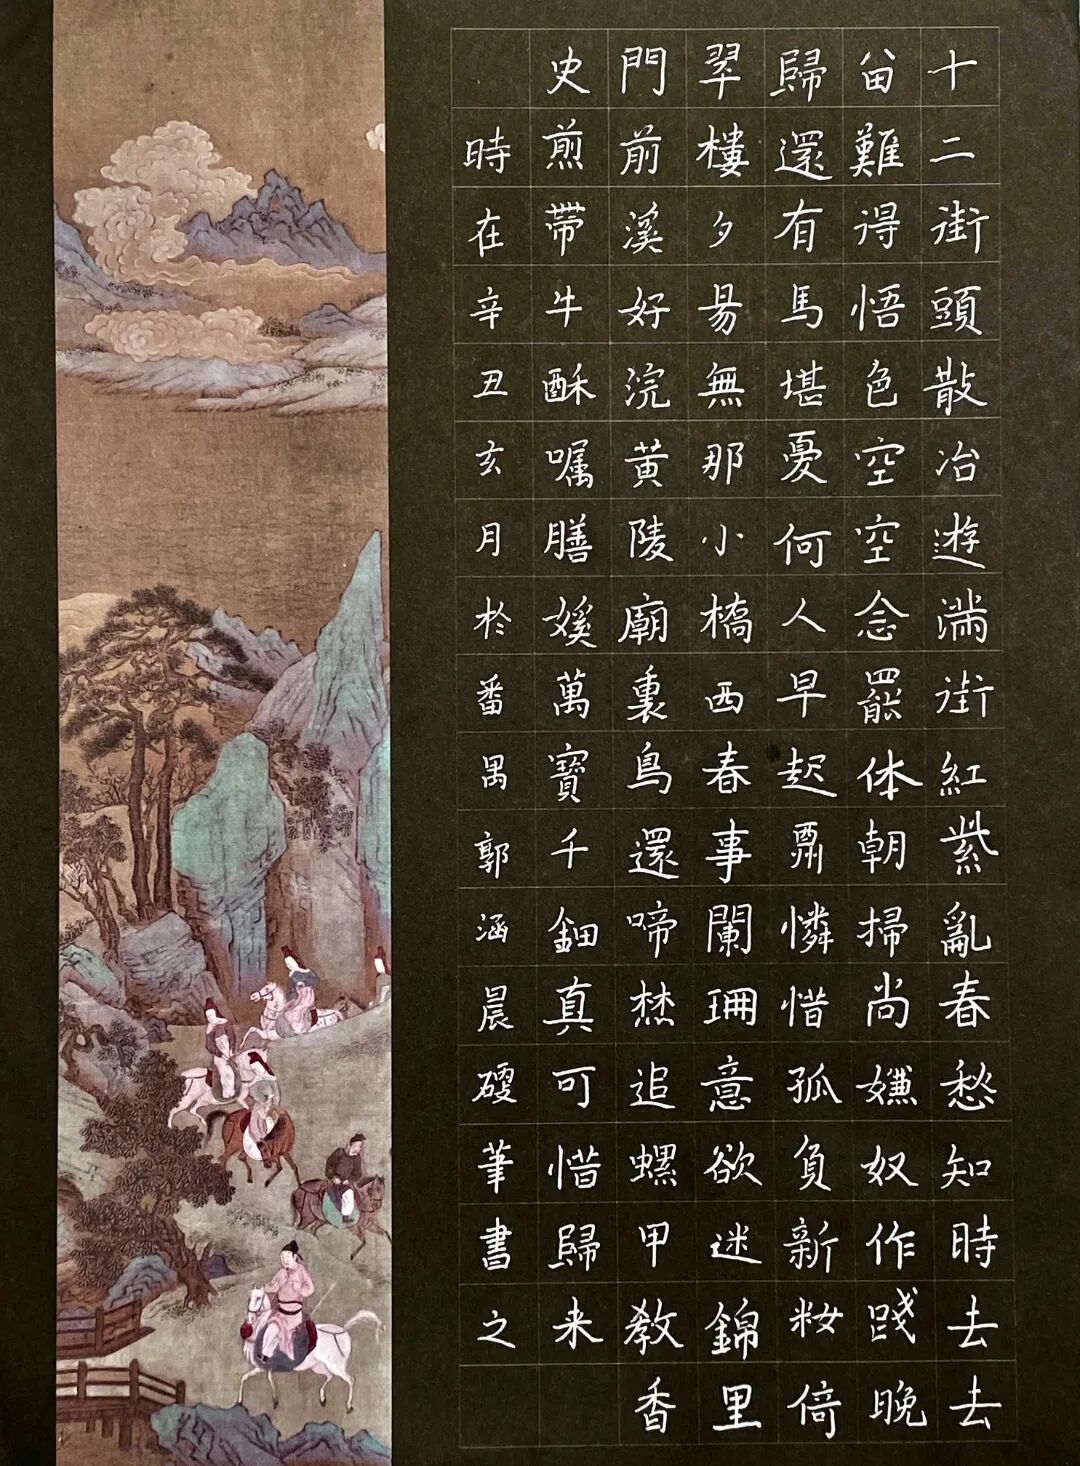 十二街頭散冶遊滿街紅紫亂春愁知時去去
留難得悟色空空念罷体朝掃尚嫌奴作踐晚
歸還有馬堪憂何人早起憐惜孤負新妝倚
翠樓夕昜無那小橋西春事闌珊意欲迷錦里
門前溪好浣黃陵廟裏鳥還啼焚追螺甲教香
史煎帶牛酥囑膳㜎萬寶千鈿真可惜歸来
時在辛丑亥月於番禺郭涵晨硬筆書之